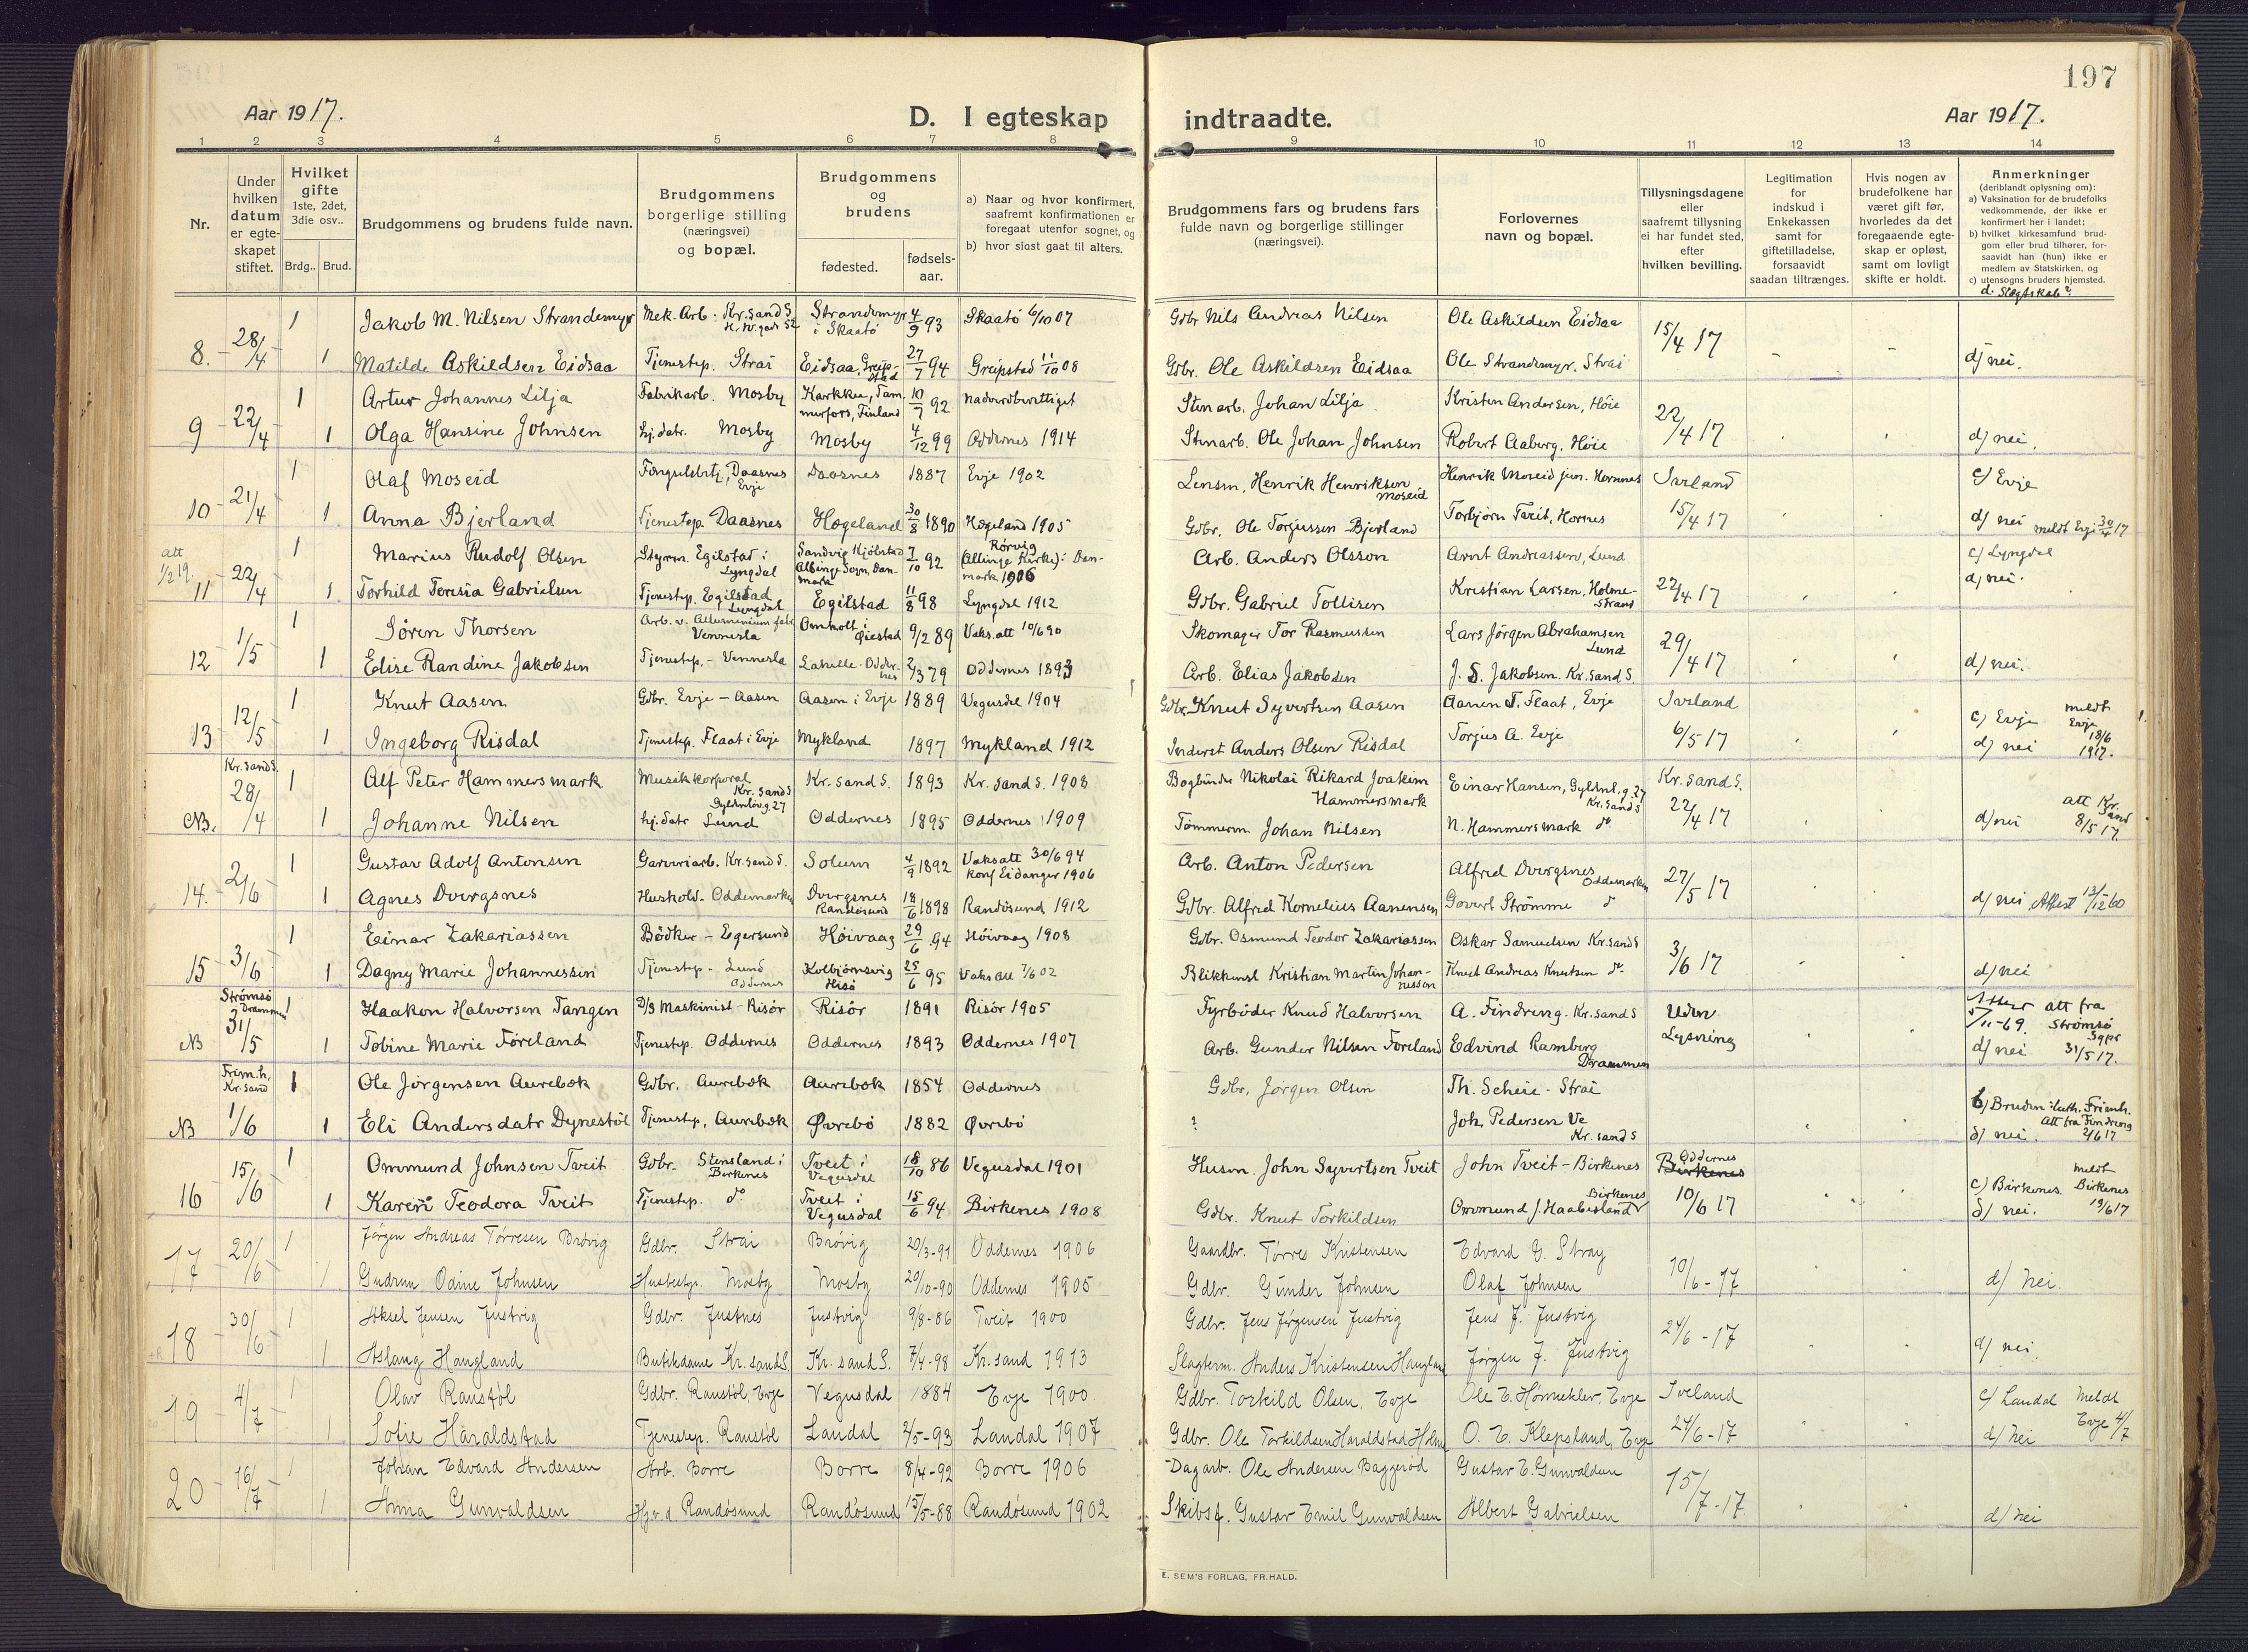 197
Aar 1917.
D. I egteskap indtraadte.
Aar 1917.
1 2 3 4 5 6 7 8 9 10 11 12 13 14
Nr.
Under hvilken datum er egteskapet stiftet.
Hvilket gifte 1ste, 2det, 3die osv..
Brdg.. Brud.
Brudgommens og brudens fulde navn.
Brudgommens borgerlige stilling (næringsvei) og bopæl.
Brudgommens og brudens
fødested.
fødsels-aar.
a) Naar og hvor konfirmert, saafremt konfirmationen er foregaat utenfor sognet, og
b) hvor sidst gaat til alters.
Brudgommens fars og brudens fars fulde navn og borgerlige stillinger (næringsvei).
Forlovernes navn og bopæl.
Tillysningsdagene eller saafremt tillysning ei har fundet sted, efter hvilken bevilling.
Legitimation for indskud i Enkekassen samt for giftetilladelse, forsaavidt saadan tiltrænges.
Hvis nogen av brudefolkene har været gift før, hvorledes da det foregaaende egteskap er opløst, samt om lovligt skifte er holdt.
Anmerkninger (deriblandt oplysning om):
a) Vaksination for de brudefolks vedkommende, der ikke er konfirmert her i landet;
b) hvilket kirkesamfund brudgom eller brud tilhører, forsaavidt han (hun) ikke er medlem av Statskirken, og
c) utensogns bruders hjemsted.
d. Slægtskab?
8. 28/4 1 Jakob M. Nilsen Strandemyr Mek. Arb. Kr.sand S. Strandemyr i Skaatö 4/9 93 Skaatö 6/10 07 Gdbr Nils Andreas Nilsen Ole Askildsen Eidsaa 15/4 17
1 Matilde Askildsen Eidsaa Tjenestep. Strai Eidsaa, Greipstad 27/7 94 Greipstad 11/10 08 Gdbr. Ole Askildsen Eidsaa Ole Strandemyr. Strai d/ nei.
9 22/4 1 Artur Johannes Lilja Fabrikarb. Mosby Karkku, Tammerfors, Finland 10/7 92 nadverdberettiget Stenarb. Johan Lilja Kristen Andersen, Höie 22/4 17
1 Olga Hansine Johnsen hj. datr. Mosby Mosby 4/12 99 Oddernes 1914 Stenarb. Ole Johan Johnsen Robert Aaberg, Höie d/ nei.
10 21/4 1 Olaf Moseid Daasnes Evje Daasnes 1887 Evje 1902 Lensm. Henrik Henriksen Moseid Henrik Moseid jun. Hornnes Iveland c/ Evje
1 Anna Bjerland Tjenestep. Daasnes Hægeland 30/8 1890 Hægeland 1905 Gdbr. Ole Torjussen Bjerland Torbjörn Tveit, Hornes 15/4 17 d/ nei meldt Evje 30/4 17
att 1/2 19.
11 22/4 1 Marius Rudolf Olsen Styrm. Egilstad i Lyngdal Sandvig Hjöbstad Albinge Sogn, Danmark 7/10 92 Rörvig (Allinge Kirke): Danmark 1906 Arb. Anders Olsson Arnt Andreassen, Lund c/ Lyngdal
1 Torhild Teresia Gabrielsen Tjenestep. Egilstad Lyngdal Egilstad 11/8 98 Lyngdal 1912 Gdbr. Gabriel Tollisen Kristian Larsen, Holmestrand 22/4 17 d/ nei.
12 1/5 1 Sören Thorsen Arb. v. Alluminium fabr Vennesla Omholt i Öiestad 9/2 89 Vaks.att 10/6 90 Skomager Tor Rasmussen Lars Jörgen Abrahamsen Lund 29/4 17
1 Elise Randine Jakobsen Tjenestep. - Vennesla Lahelle Oddernes 2/3 79 Oddernes 1893 Arb. Elias Jakobsen J. S. Jakobsen. Kr.sand S. d/ nei.
13 12/5 1 Knut Aasen Gdbr. Evje - Aasen Aasen i Evje 1889 Vegusdal 1904 Gdbr. Knut Syvertsen Aasen Aanen T. Flaat, Evje Iveland c/ Evje meldt Evje 18/6 1917.
1 Ingeborg Risdal Tjenestep. Flaat i Evje Mykland 1897 Mykland 1912 Inderst Anders Olsen Risdal Torjus A. Evje 6/5 17 d/ nei
Kr.sand S.
NB. 28/4 1 Alf Peter Hammersmark Musikkorporal Kr.sand S Gyldenløv.g. 27 Kr.sand S. 1893 Kr.sand S. 1908 Bogbinder Nikolai Rikard Joakim Hammersmark Einar Hansen, Gyldenl.g. 27 Kr.sand S Kr.sand S. 22/4 17
1 Johanne Nilsen hj.datr Lund Oddernes 1895 Oddernes 1909 Tömmerm. Johan Nilsen N. Hammersmark do d/ nei att Kr.sand 8/5 17.
14. 2/6 1 Gustav Adolf Antonsen Garveriarb. Kr.sand S. Solum 4/9 1892 Vaksatt 30/6 94 konf Eidanger 1906 Arb. Anton Pedersen Alfred Dvergsnes Oddemarken 27/5 17
1 Agnes Dvergsnes Hushold. Oddemarken Dvergsnes Randösund 18/6 1898 Randösund 1912 Gdbr. Alfred Kornelius Aanensen Govert Strömme d/ nei Attest 13/12 60
15 3/6 1 Einar Zakariassen Bödker - Egersund Höivaag 29/6 94 Höivaag 1908 Gdbr. Osmund Teodor Zakariassen Oskar Samuelsen Kr.sand S 3/6 17
1 Dagny Marie Johannessen Tjenestep - Lund Oddernes Kolbjörnsvig Hisö 25/6 95 Vaks att 7/6 02 Blikkensl Kristian Martin Johannessen Knut Andreas Knutsen do. d/ nei
Strømsö Drammen
NB 31/5 1 Haakon Halvorsen Tangen D/S Maskinist - Risör Risör 1891 Risör 1905 Fyrböder Knud Halvorsen A. Findreng. Kr.sand S Uden Lysning 5/11-69. att fra Strømsö Sgpr 31/5 17.
1 Tobine Marie Föreland Tjenestep. Oddernes Oddernes 1893 Oddernes 1907 Arb. Gunder Nilsen Foreland Edvind Ramberg Drammen d/ nei
Frim.h. Kr.sand
NB 1/6 1 Ole Jörgensen Aurebæk Gdbr. Aurebæk Aurebæk 1854 Oddernes Gdbr. Jörgen Olsen Th. Scheie - Strai
1 Eli Andersdatr Dynestöl Tjenestep, Aurebæk Øvrebö 1882 Øvrebö ? Joh. Pedersen Ve Kr.sand S b/ Bruden: luth. Frimh. Att fra Findreng 2/6 17 d/ nei.
16 15/6 1 Ommund Johnsen Tveit Gdbr. Stensland i Birkenes Tveit i Vegusdal 18/10 86 Vegusdal 1901 Husm. John Syvertsen Tveit John Tveit - Birkenes Oddernes Birkenes c/ Birkenes. meldt Birkenes 19/6 17
1 Karen Teodora Tveit Tjenestep. do Tveit i Vegusdal 15/6 94 Birkenes 1908 Gdbr. Knut Torkildsen Ommund J. Haabesland Birkenes 10/6 17 d/ nei.
17 20/6 1 Jørgen Andreas Tørresen Brøvig Gdbr. Strai Brøvig 20/3-91 Oddernes 1906 Gaardbr. Tørres Kristensen Edvard G. Stray 10/6-17
1 Gudrun Odine Johnsen Husbestyr. Mosby Mosby 20/10-90 Oddernes 1905 Gdbr. Gunder Johnsen Olaf Johnsen d/ nei.
18 30/6 1 Aksel Jensen Justvig Gdbr. Justnes Justvig 9/8-86 Tveit 1900 Gdbr. Jens Jörgensen Justvig Jens J. Justvig 24/6-17
1 Aslaug Haugland Butikdame Kr.sand S. Kr.sand S. 7/4-98 Kr.sand 1913 Slagterm. Anders Kristensen Haugland Jörgen J. Justvig d/ nei
19 4/7 1 Olav Ranstøl Gdbr. Ranstøl, Evje Vegusdal 1884 Evje 1900 Gdbr. Torkild Olsen, Evje Ole E. Hønnekler, Evje Iveland c/ Landal Meldt Evje 4/7
1 Sofie Haraldstad Tjenestep. Ranstøl Landal 2/5-93 Landal 1907 Gdbr. Ole Torkildsen Haraldstad Holme O. E. Klepsland, Evje 24/6-17 d/ nei
20 16/7 1 Johan Edvard Andersen Arb. Borre Borre 8/4-92 Borre 1906 Dagarb. Ole Andersen Baggerød Gustav E. Gunvaldsen 15/7-17
1 Anna Gunvaldsen Hj.v.d. Randösund Randösund 15/5-88 Randösund 1902 Skibsf. Gustav Emil Gunvaldsen Albert Gabrielsen d/ nei
E. SEM'S FORLAG, FR.HALD.